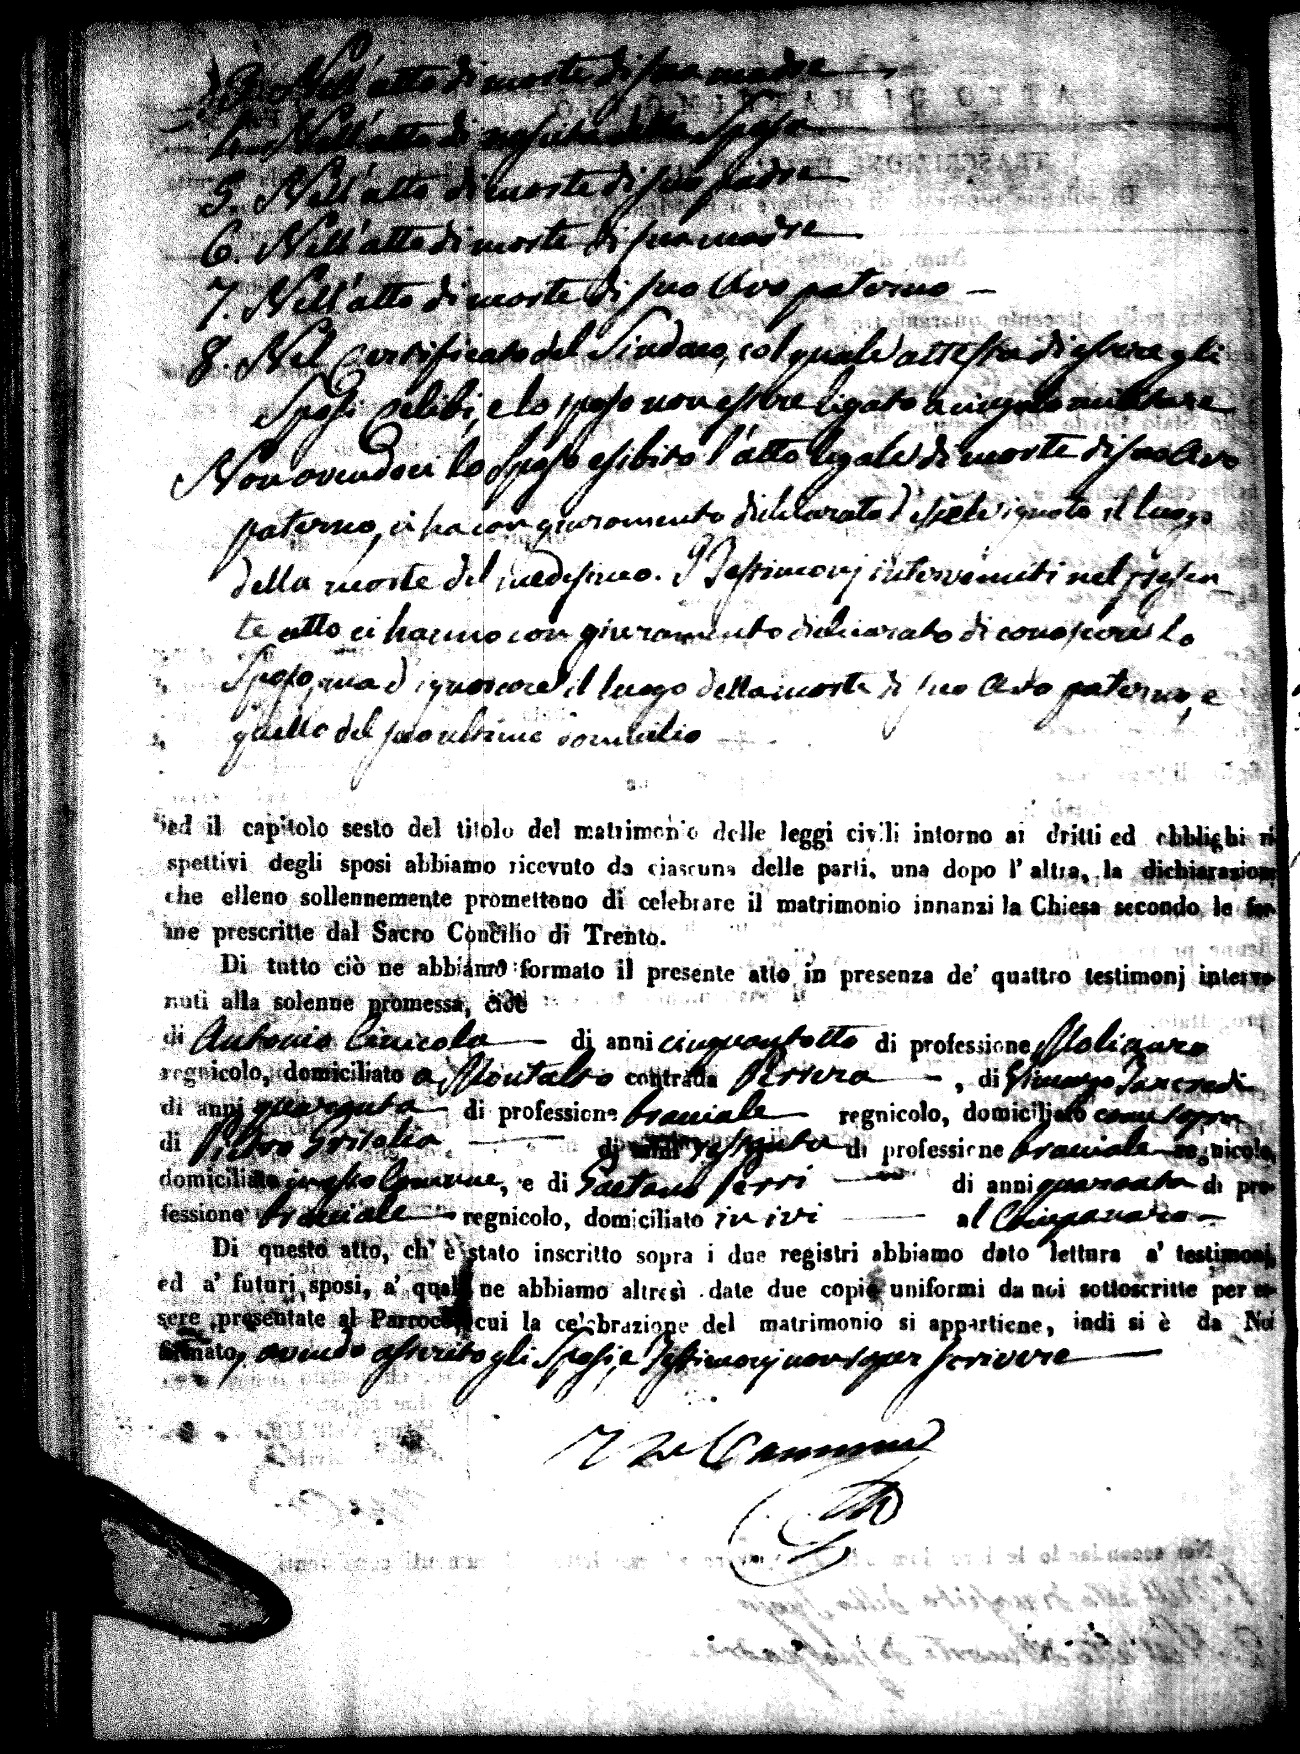 3. Nell'atto di morte di sua madre
4. Nell'atto di nascita della Sposa
5. Nell'atto di morte di suo padre
6. Nell'atto di morte di sua madre
7. Nell'atto di morte di suo Avo paterno —
8. Nel Certificato del Sindaco, col quale attesta di essere gli
Sposi Celibi, e lo sposo non essere ligato a cingolo militare
Non avendoci lo Sposo esibito l'atto legale di morte di suo Avo
paterno, ci ha con giuramento dichiarato d'essere ignoto il luogo
della morte del medesimo. I Testimonj intervenuti nel presen-
te atto ci hanno con giuramento dichiarato di conoscere lo
Sposo, ma d'ignorare il luogo della morte di suo Avo paterno, e
quello del suo ultimo domicilio
ed il capitolo sesto del titolo del matrimonio delle leggi civili intorno ai dritti ed obblighi ri
spettivi degli sposi abbiamo ricevuto da ciascuna delle parti, una dopo l'altra, la dichiarazione
che elleno sollennemente promettono di celebrare il matrimonio innanzi la Chiesa secondo le for-
me prescritte dal Sacro Concilio di Trento.
Di tutto ciò ne abbiamo formato il presente atto in presenza de' quattro testimonj interve-
nuti alla solenne promessa, cioè
di Antonio Cinicola di anni cinquantotto di professione Molinaro
regnicolo, domiciliato a Montalto contrada , di Tancredi
di anni quaranta di professione bracciale regnicolo, domiciliato come sopra
di Pietro Grisolia di anni sessanta di professione bracciale regnicolo,
domiciliato in questo Comune, e di Gaetano Perri di anni quaranta di pro-
fessione bracciale regnicolo, domiciliato in ivi al
Di questo atto, ch' è stato inscritto sopra i due registri abbiamo dato lettura a' testimonj,
ed a' futuri sposi, a' quali ne abbiamo altresì date due copie uniformi da noi sottoscritte per es-
sere presentate al Parroco, cui la celebrazione del matrimonio si appartiene, indi si è da Noi
firmato, avendo asserito gli Sposi, e Testimonj non saper scrivere